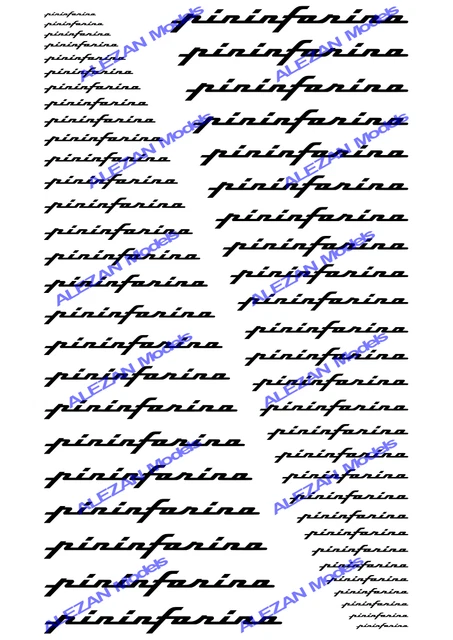 pininfarina
pininfarina
pininfarina
pininfarina
pininfarina
pininfarina
pininfarina
pininfarina
pininfarina
pininfarina
pininfarina
pininfarina
pininfarina
pininfarina
pininfarina
pininfarina
pininfarina
pininfarina
pininfarina
pininfarina
pininfarina
pininfarina
pininfarina
pininfarina
pininfarina
pininfarina
pininfarina
pininfarina
pininfarina
pininfarina
pininfarina
pininfarina
pininfarina
pininfarina
pininfarina
pininfarina
pininfarina
pininfarina
pininfarina
pininfarina
pininfarina
pininfarina
pininfarina
pininfarina
pininfarina
pininfarina
pininfarina
pininfarina
pininfarina
pininfarina
pininfarina
pininfarina
pininfarina
ALEZAN Models
ALEZAN Models
ALEZAN Models
ALEZAN Models
ALEZAN Models
ALEZAN Models
ALEZAN Models
ALEZAN Models
ALEZAN Models
ALEZAN Models
ALEZAN Models
ALEZAN Models